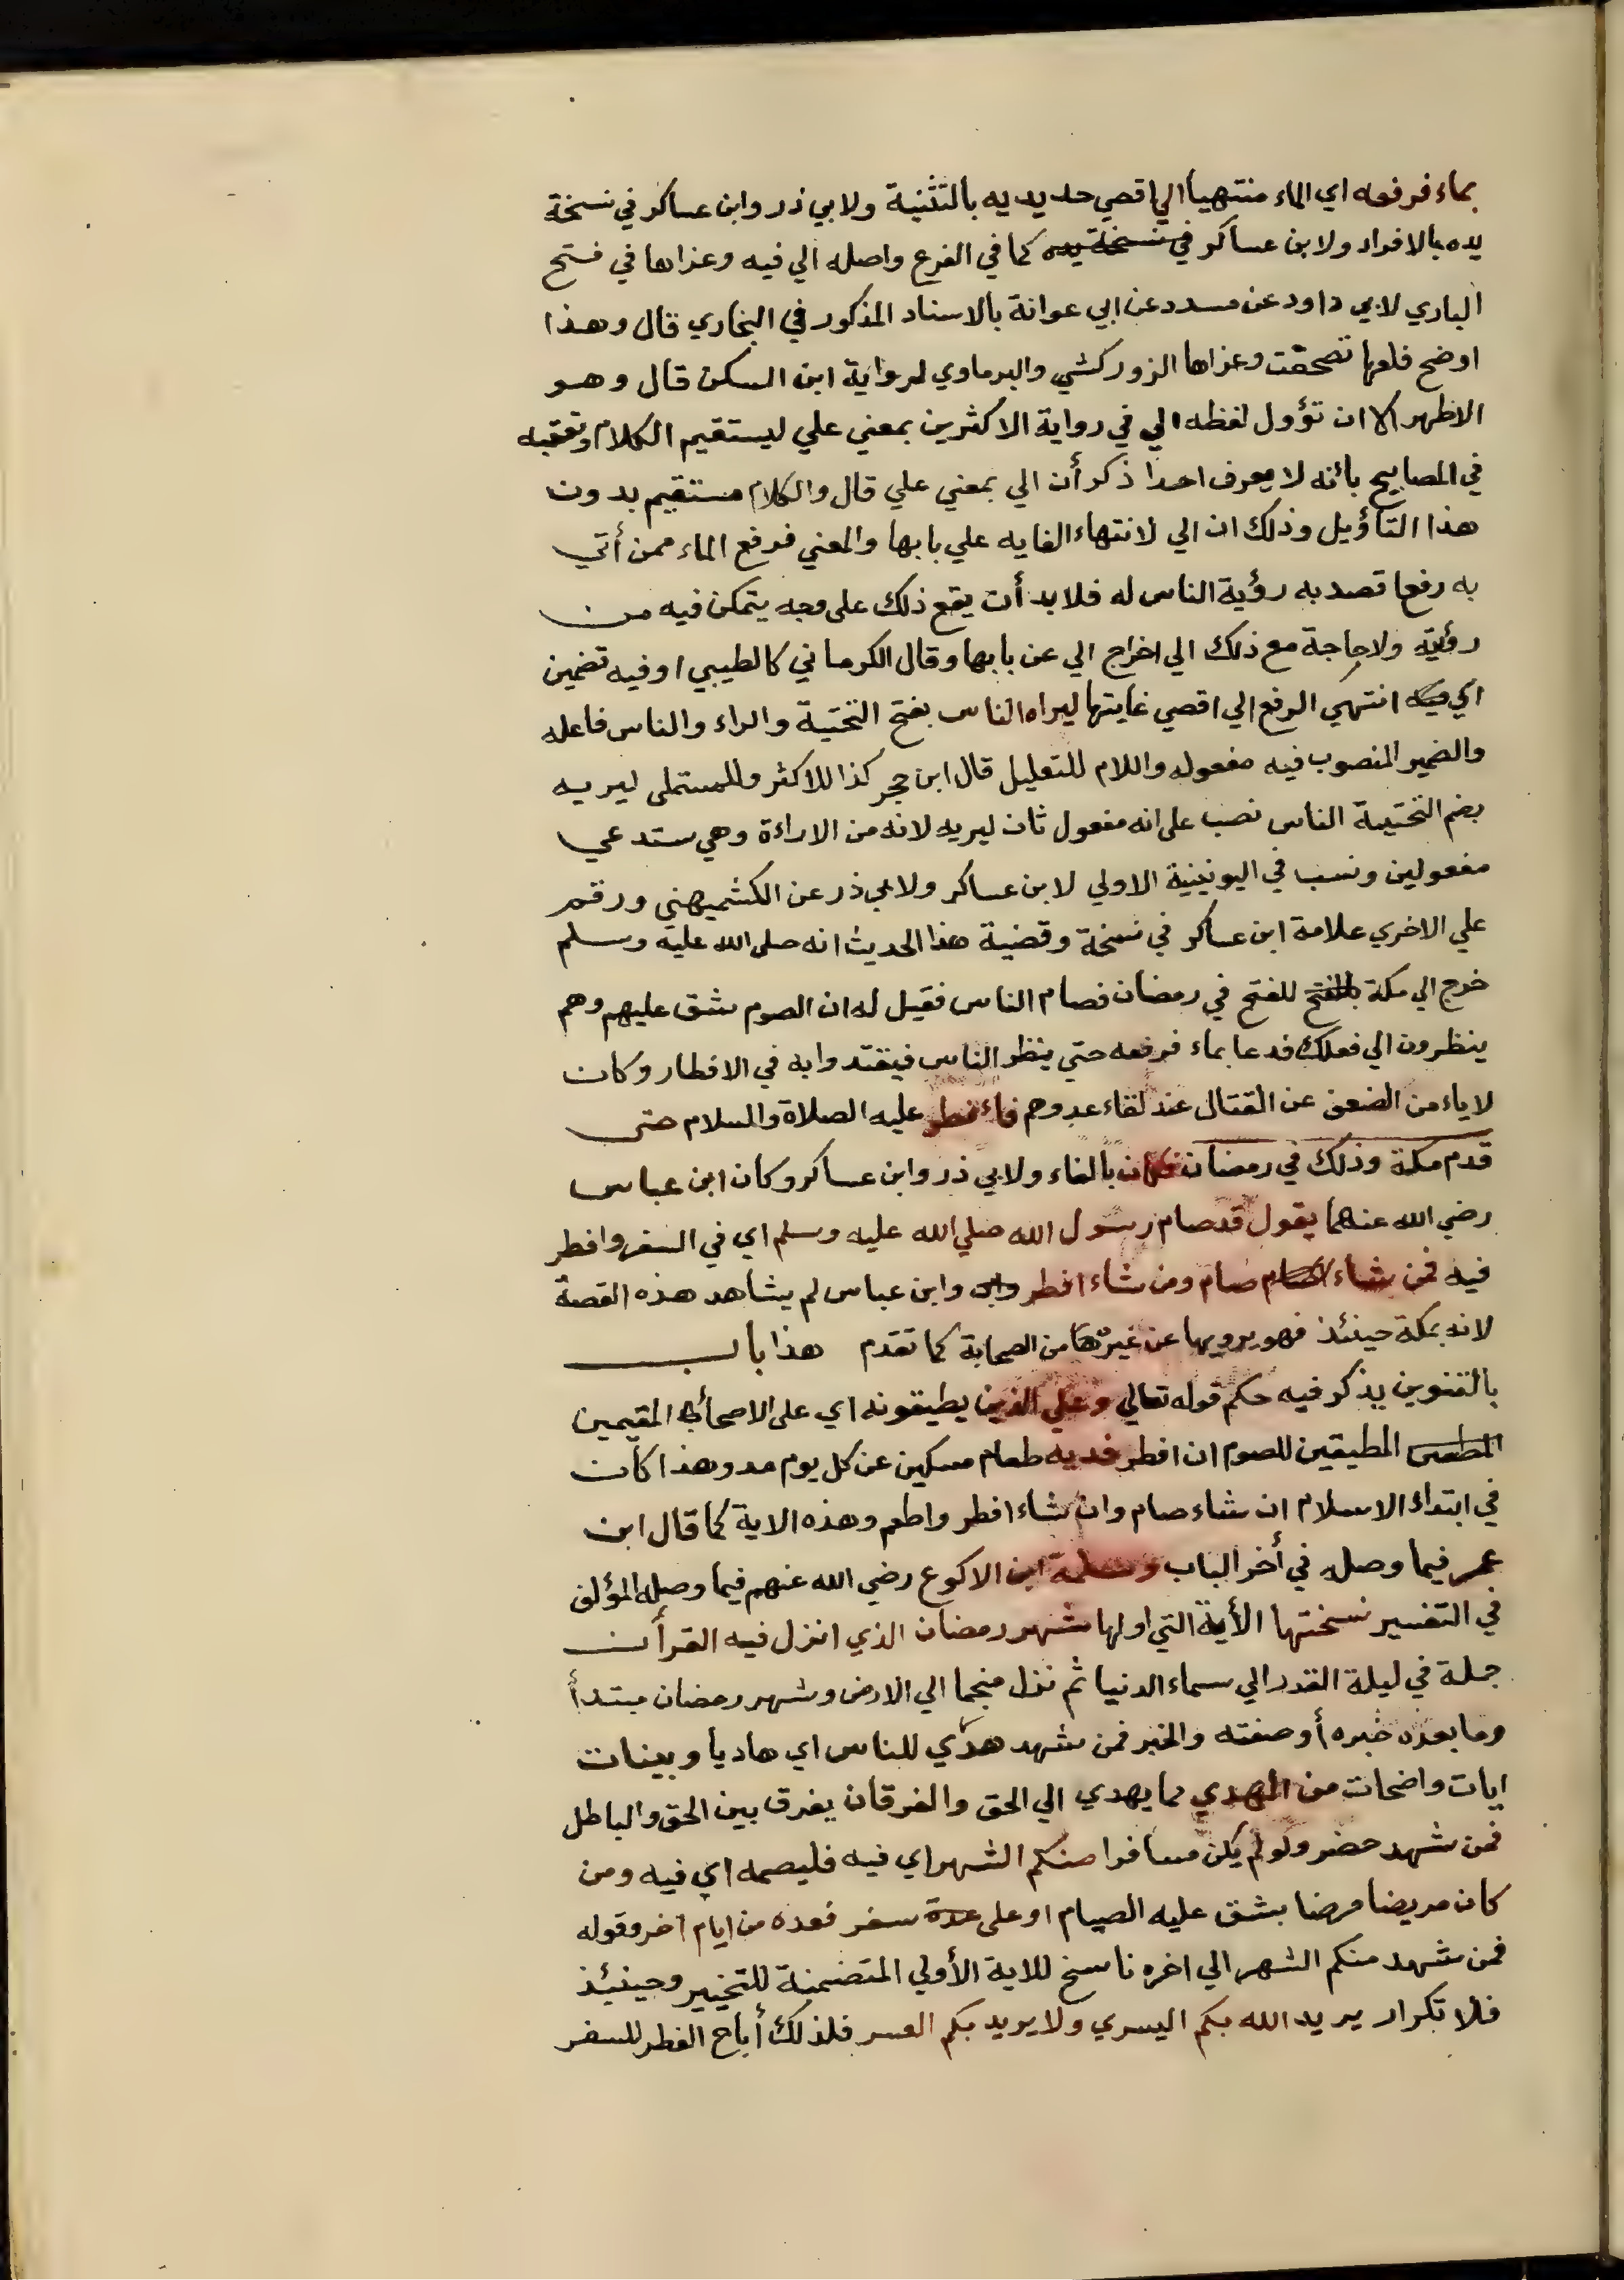 بماء فرفعه اي الماء منتهيا الي اقصي حد يديه بالتثنية ولابي ذر وابن عساكر في نسخة
يده بالافراد ولابن عساكر في نسخة يده كما في الفرع واصله الي فيه وعزاها في فتح
الباري لابي داود عن مسدد عن ابي عوانة بالاسناد المذكور في البخاري قال وهذا
اوضح فلعلها تصحفت وعزاها الزوركشي والبرماوي لرواية ابن السكن قال وهو
الاظهر الا ان تؤول لفظه الي في رواية الاكثرين بمعني علي ليستقيم الكلام وتعقبه
في المصابيح بانه لا يعرف احدا ذكر أن الي بمعني علي قال والكلام مستقيم بدون
هذا التأويل وذلك ان الي لانتهاء الغايه علي بابها والمعني فرفع الماء ممن أتي
به رفعا قصد به رؤية الناس له فلا بد أن يقع ذلك على وجه يتمكن فيه من
رؤيته ولا حاجة مع ذلك الي اخراج الي عن بابها وقال الكرماني كالطيبي او فيه تضمين
اي فيه انتهي الرفع الي اقصي غايتها ليراه الناس بفتح التحتية والراء والناس فاعله
والضمير المنصوب فيه مفعوله واللام للتعليل قال ابن حجر كذا للاكثر وللمستملى ليريه
بضم التحتيه الناس نصب على انه مفعول ثان ليريه لانه من الاراءة وهي ستدعي
مفعولين ونسب في اليونينية الاولي لابن عساكر ولابي ذر عن الكشميهني ورقم
علي الاخري علامة ابن عساكر في نسخة وقضية هذا الحديث انه صلى الله عليه وسلم
خرج الي مكة بالفتح للفتح في رمضان فصام الناس فقيل له ان الصوم شق عليهم وهم
ينظرون الي فعلك فدعا بماء فرفعه حتي ينظر الناس فيقتدوا به في الافطار وكان
لاياء من الضعف عن القتال عند لقاء عدوهم فاءفطر عليه الصلاة والسلام حتى
قدم مكة وذلك في رمضان فكان بالفاء ولابي ذر وابن عساكر وكان ابن عباس
رضي الله عنهما يقول قد صام رسول الله صلي الله عليه وسلم اي في السفر وافطر
فيه فمن شاء صام ومن شاء افطر وابن عباس لم يشاهد هذه القصة
لانه بمكة حينئذ فهو يرويها عن غيره من الصحابة كما تقدم هذا باب
بالتنوين يذكر فيه حكم قوله تعالي وعلي الذين يطيقونه اي على الاصحاء المقيمين
المطيقين للصوم ان افطر فديه طعام مسكين عن كل يوم مد وهذا كان
في ابتداء الاسلام ان شاء صام وان شاء افطر واطعم وهذه الاية كما قال ابن
عمر فيما وصله في أخر الباب وسلمة ابن الاكوع رضي الله عنهم فيما وصله المؤلف
في التفسير نسختها الأية التي اولها شهر رمضان الذي انزل فيه القرأن
جملة في ليلة القدر الي سماء الدنيا ثم نزل منجما الي الارض وشهر رمضان مبتدأ
وما بعده خبره أو صفته والخبر فمن شهد هدي للناس اي هاديا وبينات
ايات واضحات من الهدي مما يهدي الي الحق والفرقان يفرق بين الحق والباطل
فمن شهد حضر ولو لم يكن مسافرا منكم الشهر اي فيه فليصمه اي فيه ومن
كان مريضا مرضا يشق عليه الصيام او على عدة سفر فعده من ايام اخر وقوله
فمن شهد منكم الشهر الي اخره ناسخ للاية الأولي المتضمنة للتخيير وحينئذ
فلا تكرار يريد الله بكم اليسري ولا يريد بكم العسر فلذلك أباح الفطر للسفر